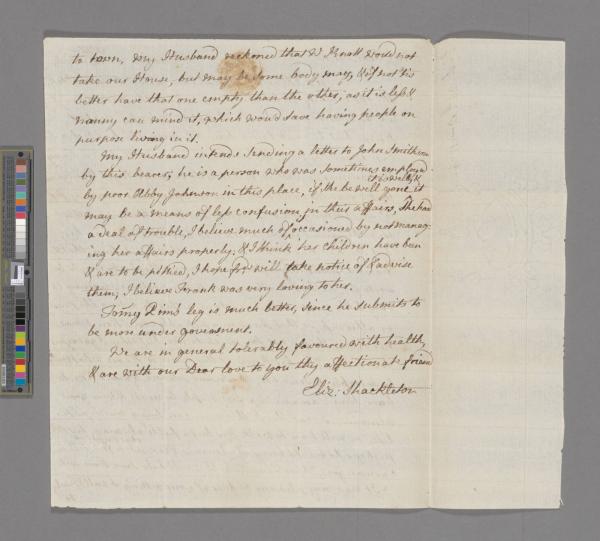 to town, my Husband reckoned that J Knott would not
take our House, but may be some body may, & if not 'tis
better have that one empty than the other, as it is less &
nanny can mind it, which would save having people on
purpose living in it.
My Husband intends sending a letter to John
by this bearer; he is a person who was sometimes employd
by poor Abby Johnson in this place, if the be well gone it
may be a means of less confusion in their affairs, She had
a deal of trouble, I believe much of occasioned by not manag-
ing her affairs properly; & I think her children have been
& are to be pitied, I hope will take notice of & advise
them, I believe Frank was very loving to her.
Tommy Pim's leg is much better, since he submits to
be more under government.
We are in general tolerably favoured with health,
& are with our Dear love to you thy affectionate friend
Eliz: Shackleton